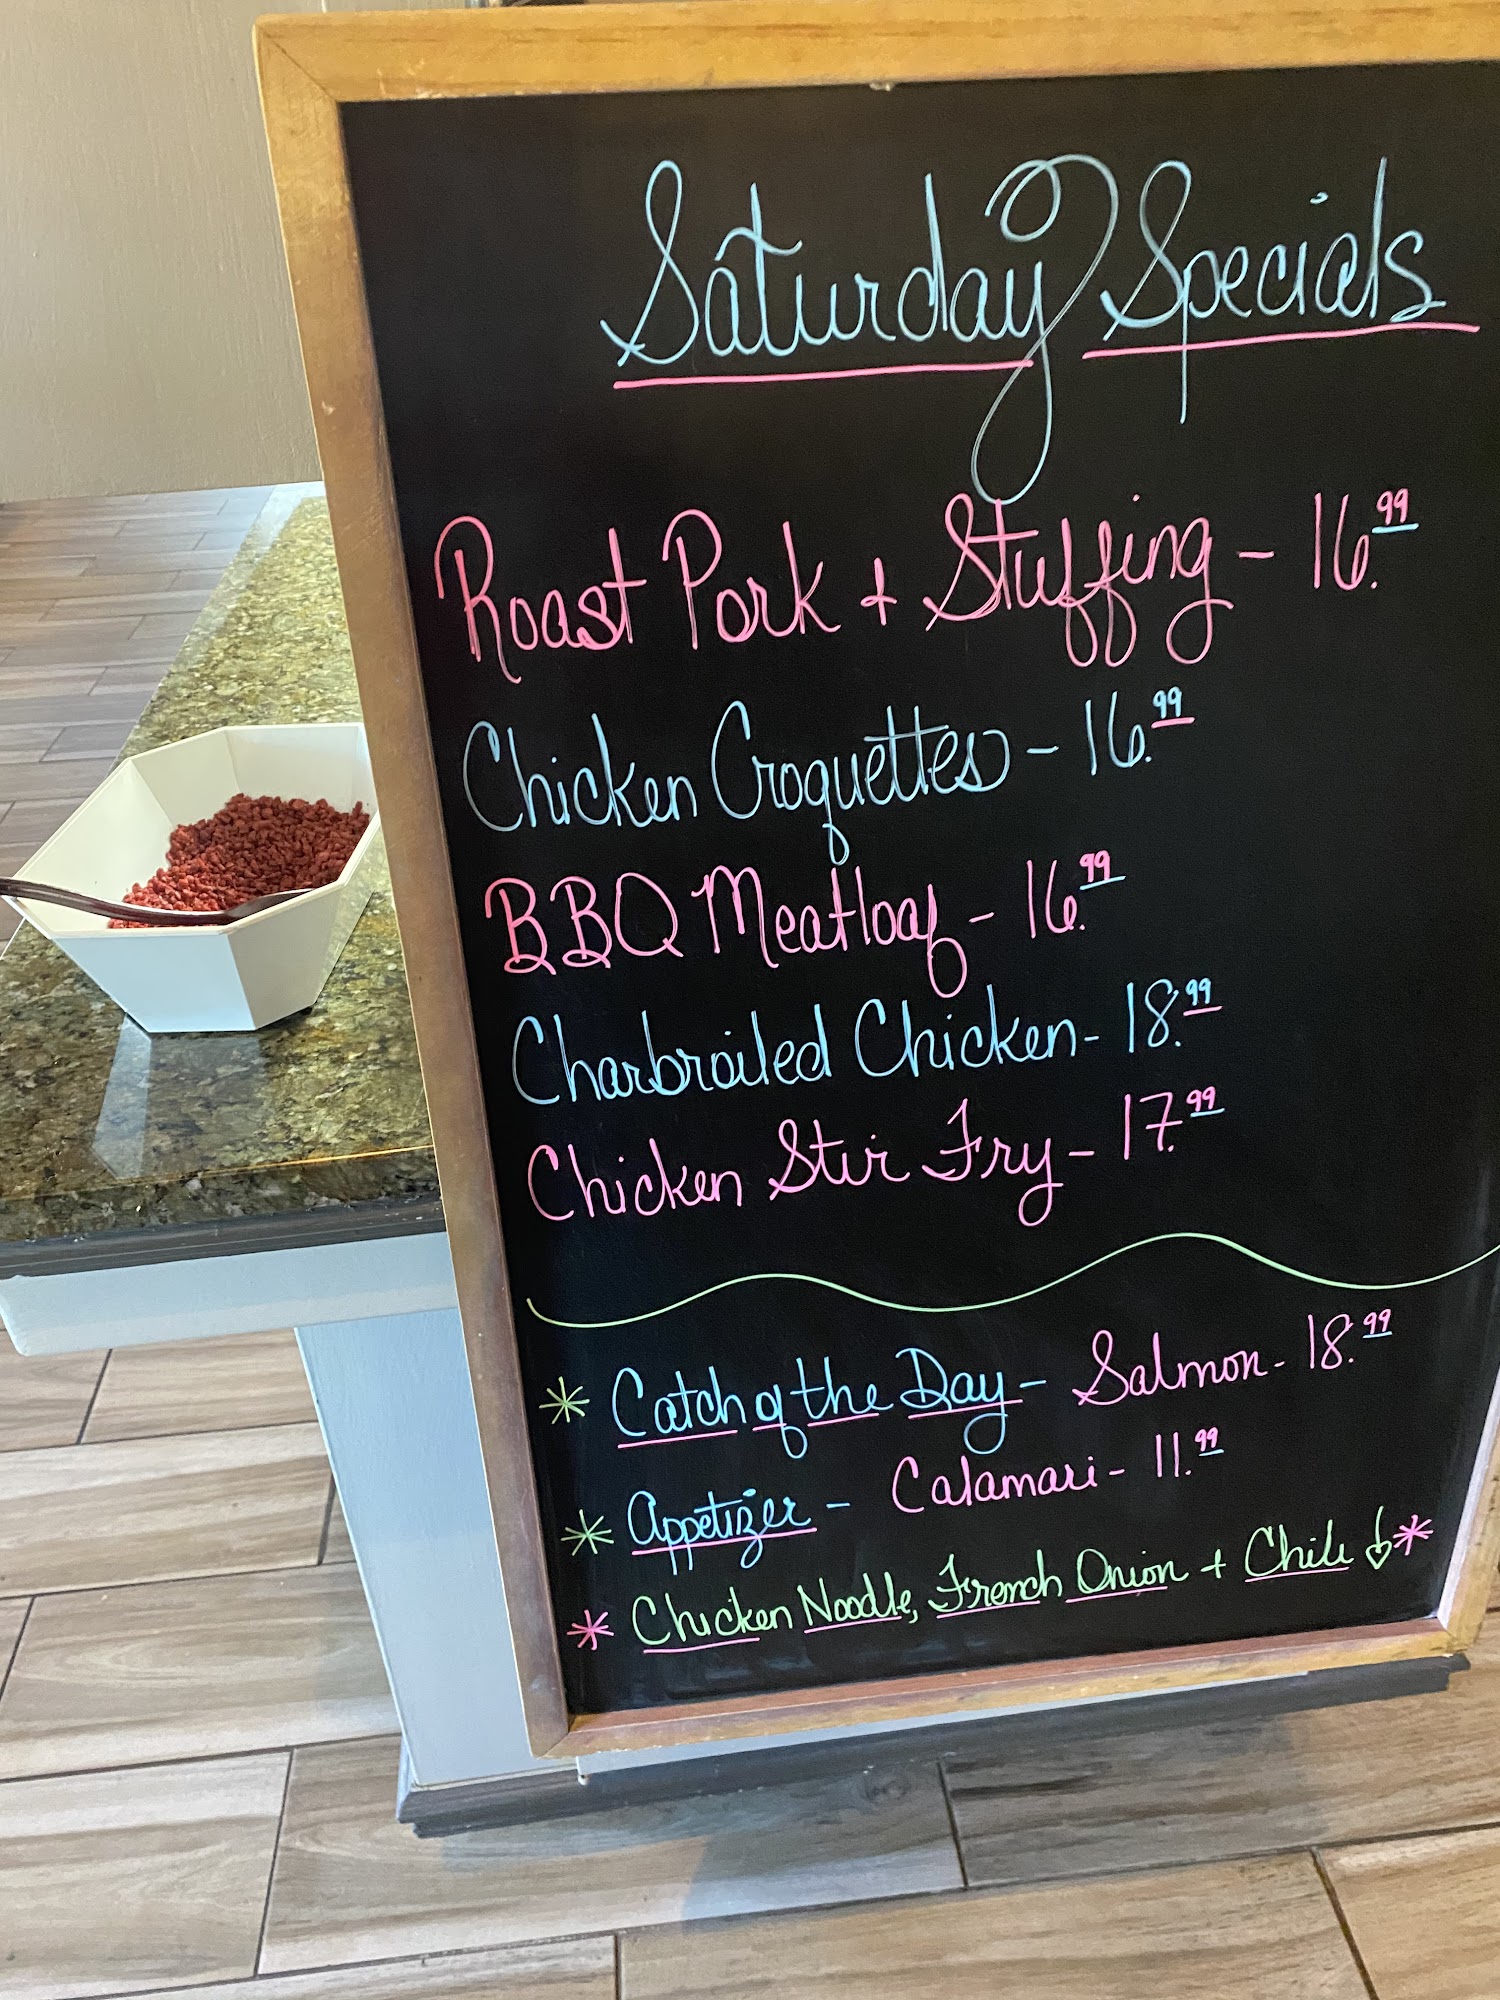 Saturday Specials
Roast Pork + Stuffing - 16.99
Chicken Croquettes - 16.99
BBQ Meatloaf - 16.99
Charbroiled Chicken - 18.99
Chicken Stir Fry - 17.99
* Catch of the Day - Salmon - 18.99
* Appetizer - Calamari - 11.99
* Chicken Noodle, French Onion + Chili *